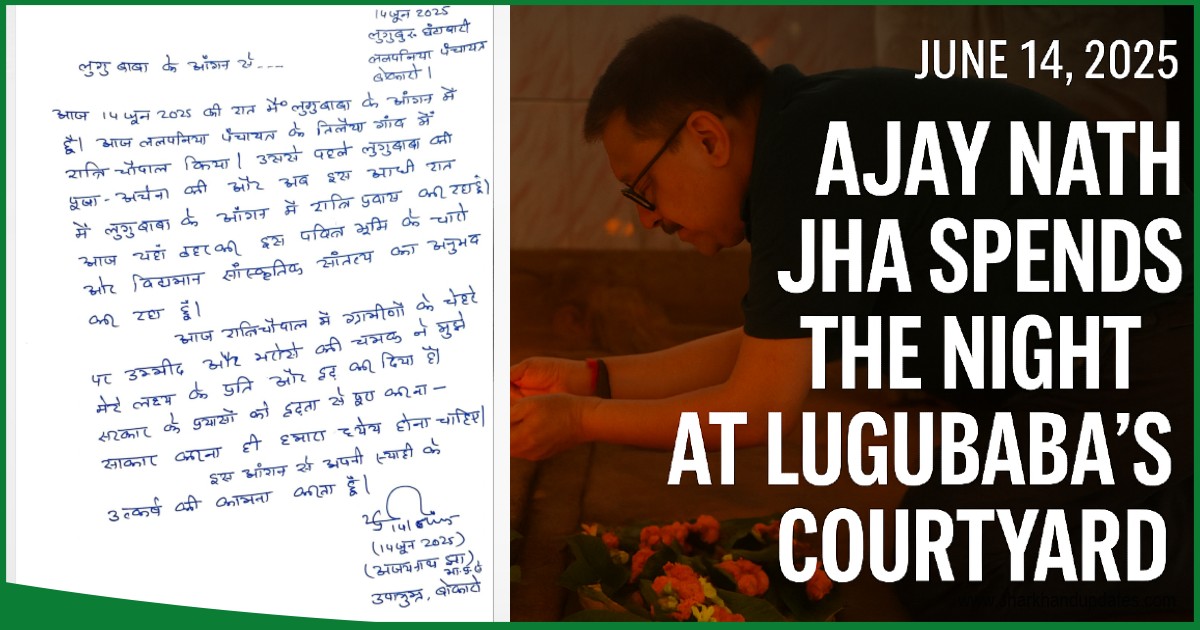 14 जून 2025
लुगुबुरु घंटाबाड़ी
ललपनिया पंचायत
बोकारो।
लुगु बाबा के आँगन से ----
आज 14 जून 2025 की रात मैं लुगुबाबा के आँगन में
हूँ। आज ललपनिया पंचायत के तिलैया गांव में
रात्रि चौपाल किया। उससे पहले लुगुबाबा की
पूजा-अर्चना की और अब इस आधी रात
में लुगुबाबा के आँगन में रात्रि प्रवास कर रहा हूं।
आज यहां ठहरकर इस पवित्र भूमि के चारो
ओर विद्यमान सांस्कृतिक सांतत्य का अनुभव
कर रहा हूँ।
आज रात्रि चौपाल में ग्रामीणों के चेहरे
पर उम्मीद और भरोसे की चमक ने मुझे
मेरे लक्ष्य के प्रति और दृढ़ कर दिया है।
सरकार के प्रयासों को दृढता से पूरा करना -
साकार करना ही हमारा ध्येय होना चाहिए।
इस आँगन से अपनी स्याही के
उत्कर्ष की कामना करता हूँ।
(14 जून 2025)
(अजय नाथ झा)
भा.प्र.से
उपायुक्त, बोकारो
JUNE 14, 2025
AJAY NATH
JHA SPENDS
THE NIGHT
AT LUGUBABA’S
COURTYARD